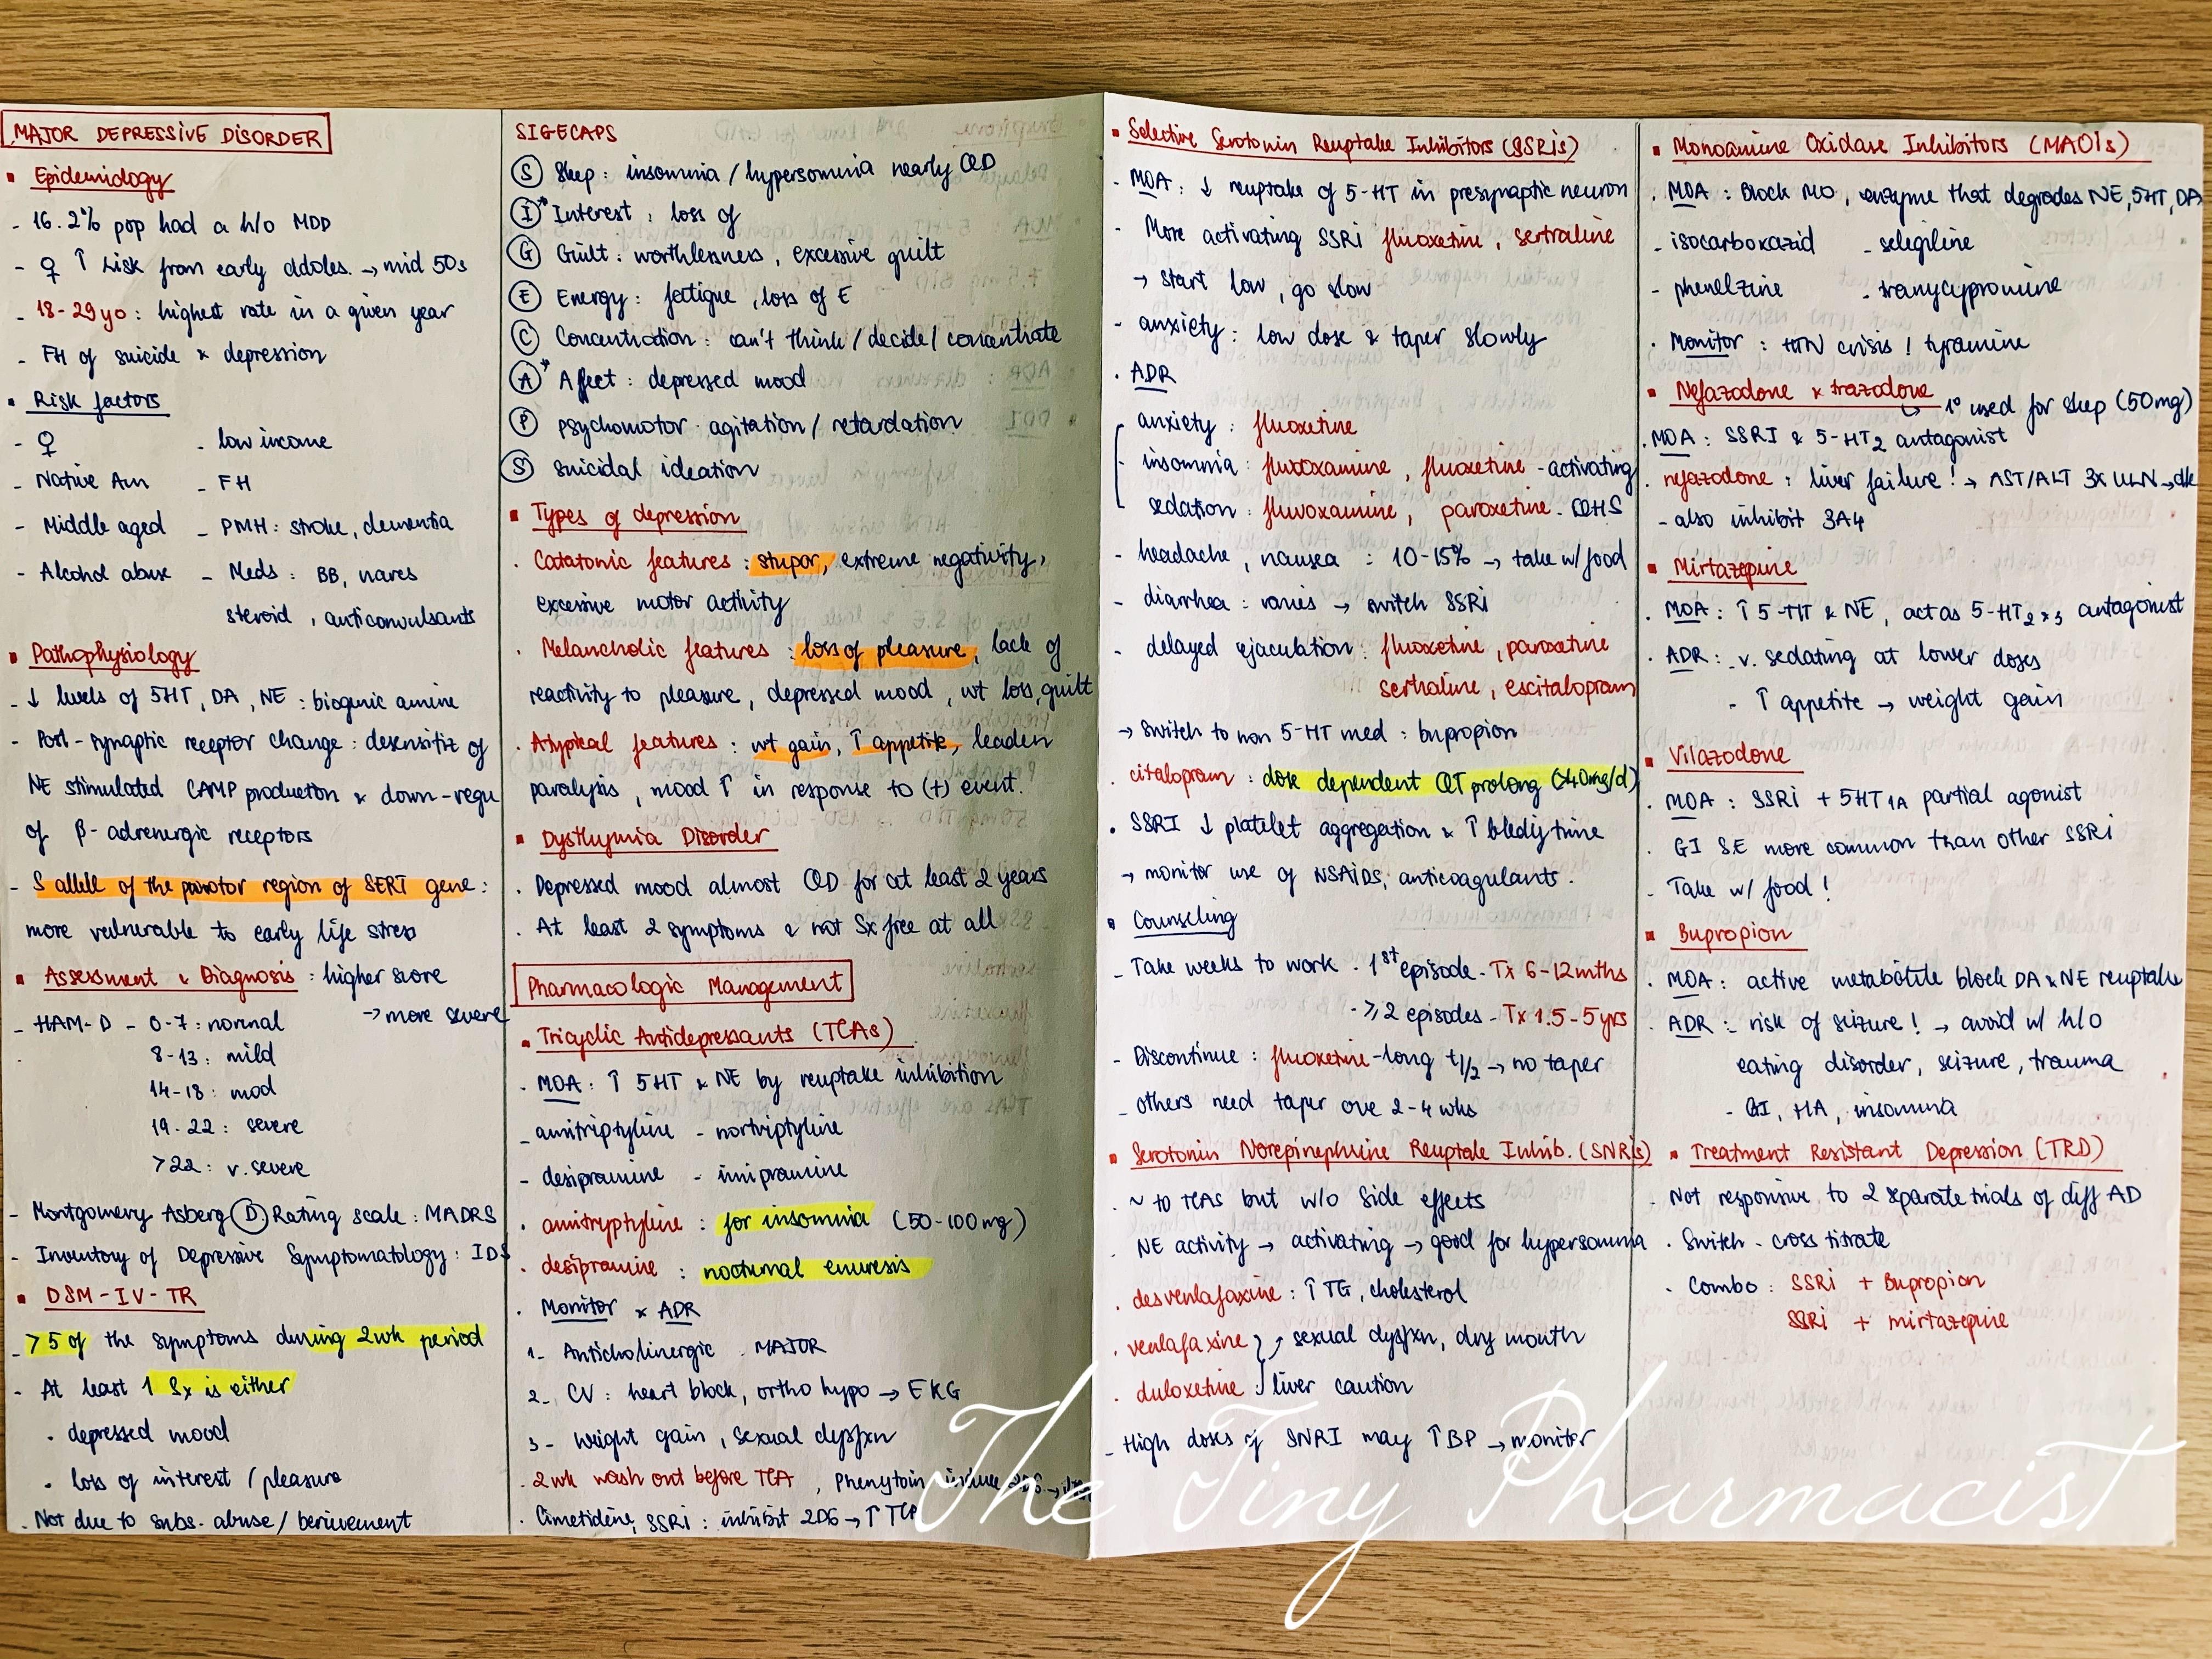 MAJOR DEPRESSIVE DISORDER
▪ Epidemiology
- 16.2% pop had a h/o MDD
- ♀ ↑ risk from early addoles. → mid 50s
- 18-29yo : highest rate in a given year
- FH of suicide & depression
• Risk factors
- ♀ - low income
- Native Am - FH
- Middle aged - PMH : stroke, dementia
- Alcohol abuse - Meds : BB, nares
steroid , anticonvulsants
▪ Pathophysiology
- ↓ levels of 5HT, DA, NE : biogenic amine
- Post-synaptic receptor change : desensitiz of
NE stimulated CAMP production & down-regu
of β-adrenergic receptors
- S allell of the region of SERT gene :
more vulnerable to early life stress
▪ Assessment & Diagnosis : higher score
→ more severe
- HAM-D - 0-7 : normal
8-13 : mild
14-18 : mod
19-22 : severe
>22 : v. severe
- Montgomery Asberg D. Rating scale : MADRS
- Inventory of Depressive Symptomatology : IDS
▪ DSM-IV-TR
- >5 of the symptoms during 2wk period
- At least 1 Sx is either
• depressed mood
• loss of interest / pleasure
. Not due to subs. abuse / berievement
SIGECAPS
S Sleep : insomnia / hypersomnia nearly QD
I* Interest : loss of
G Guilt : worthlessness , excessive guilt
E Energy : fatigue , loss of E
C Concentration : can't think / decide / concentrate
A* Affect : depressed mood
P psychomotor agitation / retardation
S suicidal ideation
▪ Types of depression
. Catatonic features : stupor, extreme negativity,
excessive motor activity
. Melancholic features : loss of pleasure, lack of
reactivity to pleasure , depressed mood , wt loss, guilt
. Atypical features : wt gain, ↑ appetite, leaden
paralysis , mood ↑ in response to (+) event.
▪ Dysthymia Disorder
. Depressed mood almost QD for at least 2 years
. At least 2 symptoms & not Sx free at all
Pharmacologic Management
▪ Tricyclic Antidepressants (TCAs)
. MOA : ↑ 5HT & NE by reuptake inhibition
- amitriptyline - nortriptyline
- desipramine - imipramine
. amitryptyline : for insomnia (50-100mg)
. desipramine : nocturnal enuresis
. Monitor & ADR
1- Anticholinergic . MAJOR
2- CV : heart block, ortho hypo → EKG
3- weight gain , sexual dysfxn
. 2wk wash out before TCA , Phenytoin induce 2D6 →
. Cimetidine, SSRi : inhibit 2D6 → ↑ TCA
▪ Selective Serotonin Reuptake Inhibitors (SSRis)
- MOA : ↓ reuptake of 5-HT in presynaptic neuron
- More activating SSRi fluoxetine , sertraline
→ start low , go slow
- anxiety : low dose & taper slowly
. ADR
- anxiety : fluoxetine
- insomnia : fluvoxamine , fluoxetine - activating
- sedation : fluvoxamine, paroxetine - QHS
- headache , nausea : 10-15% → take w/ food
- diarrhea : varies → switch SSRi
- delayed ejaculation : fluoxetine , paroxetine
sertraline , escitalopram
→ Switch to non 5-HT med : bupropion
. citalopram : dose dependent QT prolong (>40mg/d)
. SSRI ↓ platelet aggregation & ↑ bledig time
→ monitor use of NSAIDS, anticoagulants.
▪ Counseling
- Take weeks to work . 1st episode - Tx 6-12mths
. ≥ 2 episodes - Tx 1.5-5yrs
- Discontinue : fluoxetine - long t1/2 → no taper
- others need taper ove 2-4 wks
▪ Serotonin Norepinephrine Reuptake Inhib. (SNRis)
. ~ to TCAs but w/o side effects
. NE activity → activating → good for hypersomnia
. desvenlafaxine : ↑ TG, cholesterol
. venlafaxine } → sexual dysfxn, dry mouth
. duloxetine } liver caution
- High doses of SNRI may ↑ BP → monitor
▪ Monoamine Oxidase Inhibitors (MAOIs)
. MOA : Block MO , enzyme that degrades NE, 5HT, DA
- isocarboxazid - selegiline
- phenelzine - tranycypromine
. Monitor : HTN crisis ! tyramine
▪ Nefazodone & trazodone → 1° used for sleep (50mg)
. MOA : SSRI & 5-HT2 antagonist
. nefazodone : liver failure ! → AST/ALT 3x ULN → d/c
- also inhibit 3A4
▪ Mirtazepine
. MOA : ↑ 5-HT & NE , act as 5-HT2 & 3 antagonist
. ADR : - v. sedating at lower doses
- ↑ appetite → weight gain
▪ Vilazodone
. MOA : SSRi + 5HT1A partial agonist
. GI S.E more common than other SSRi
- Take w/ food !
▪ Bupropion
. MOA : active metabolite block DA & NE reuptake
. ADR : - risk of seizure ! → avoid w/ h/o
eating disorder , seizure , trauma
- GI, HA, insomnia
▪ Treatment Resistant Depression (TRD)
. Not responsive to 2 separate trials of diff AD
. Switch - cross titrate
. Combo : SSRi + Bupropion
SSRi + mirtazepine
The Tiny Pharmacist